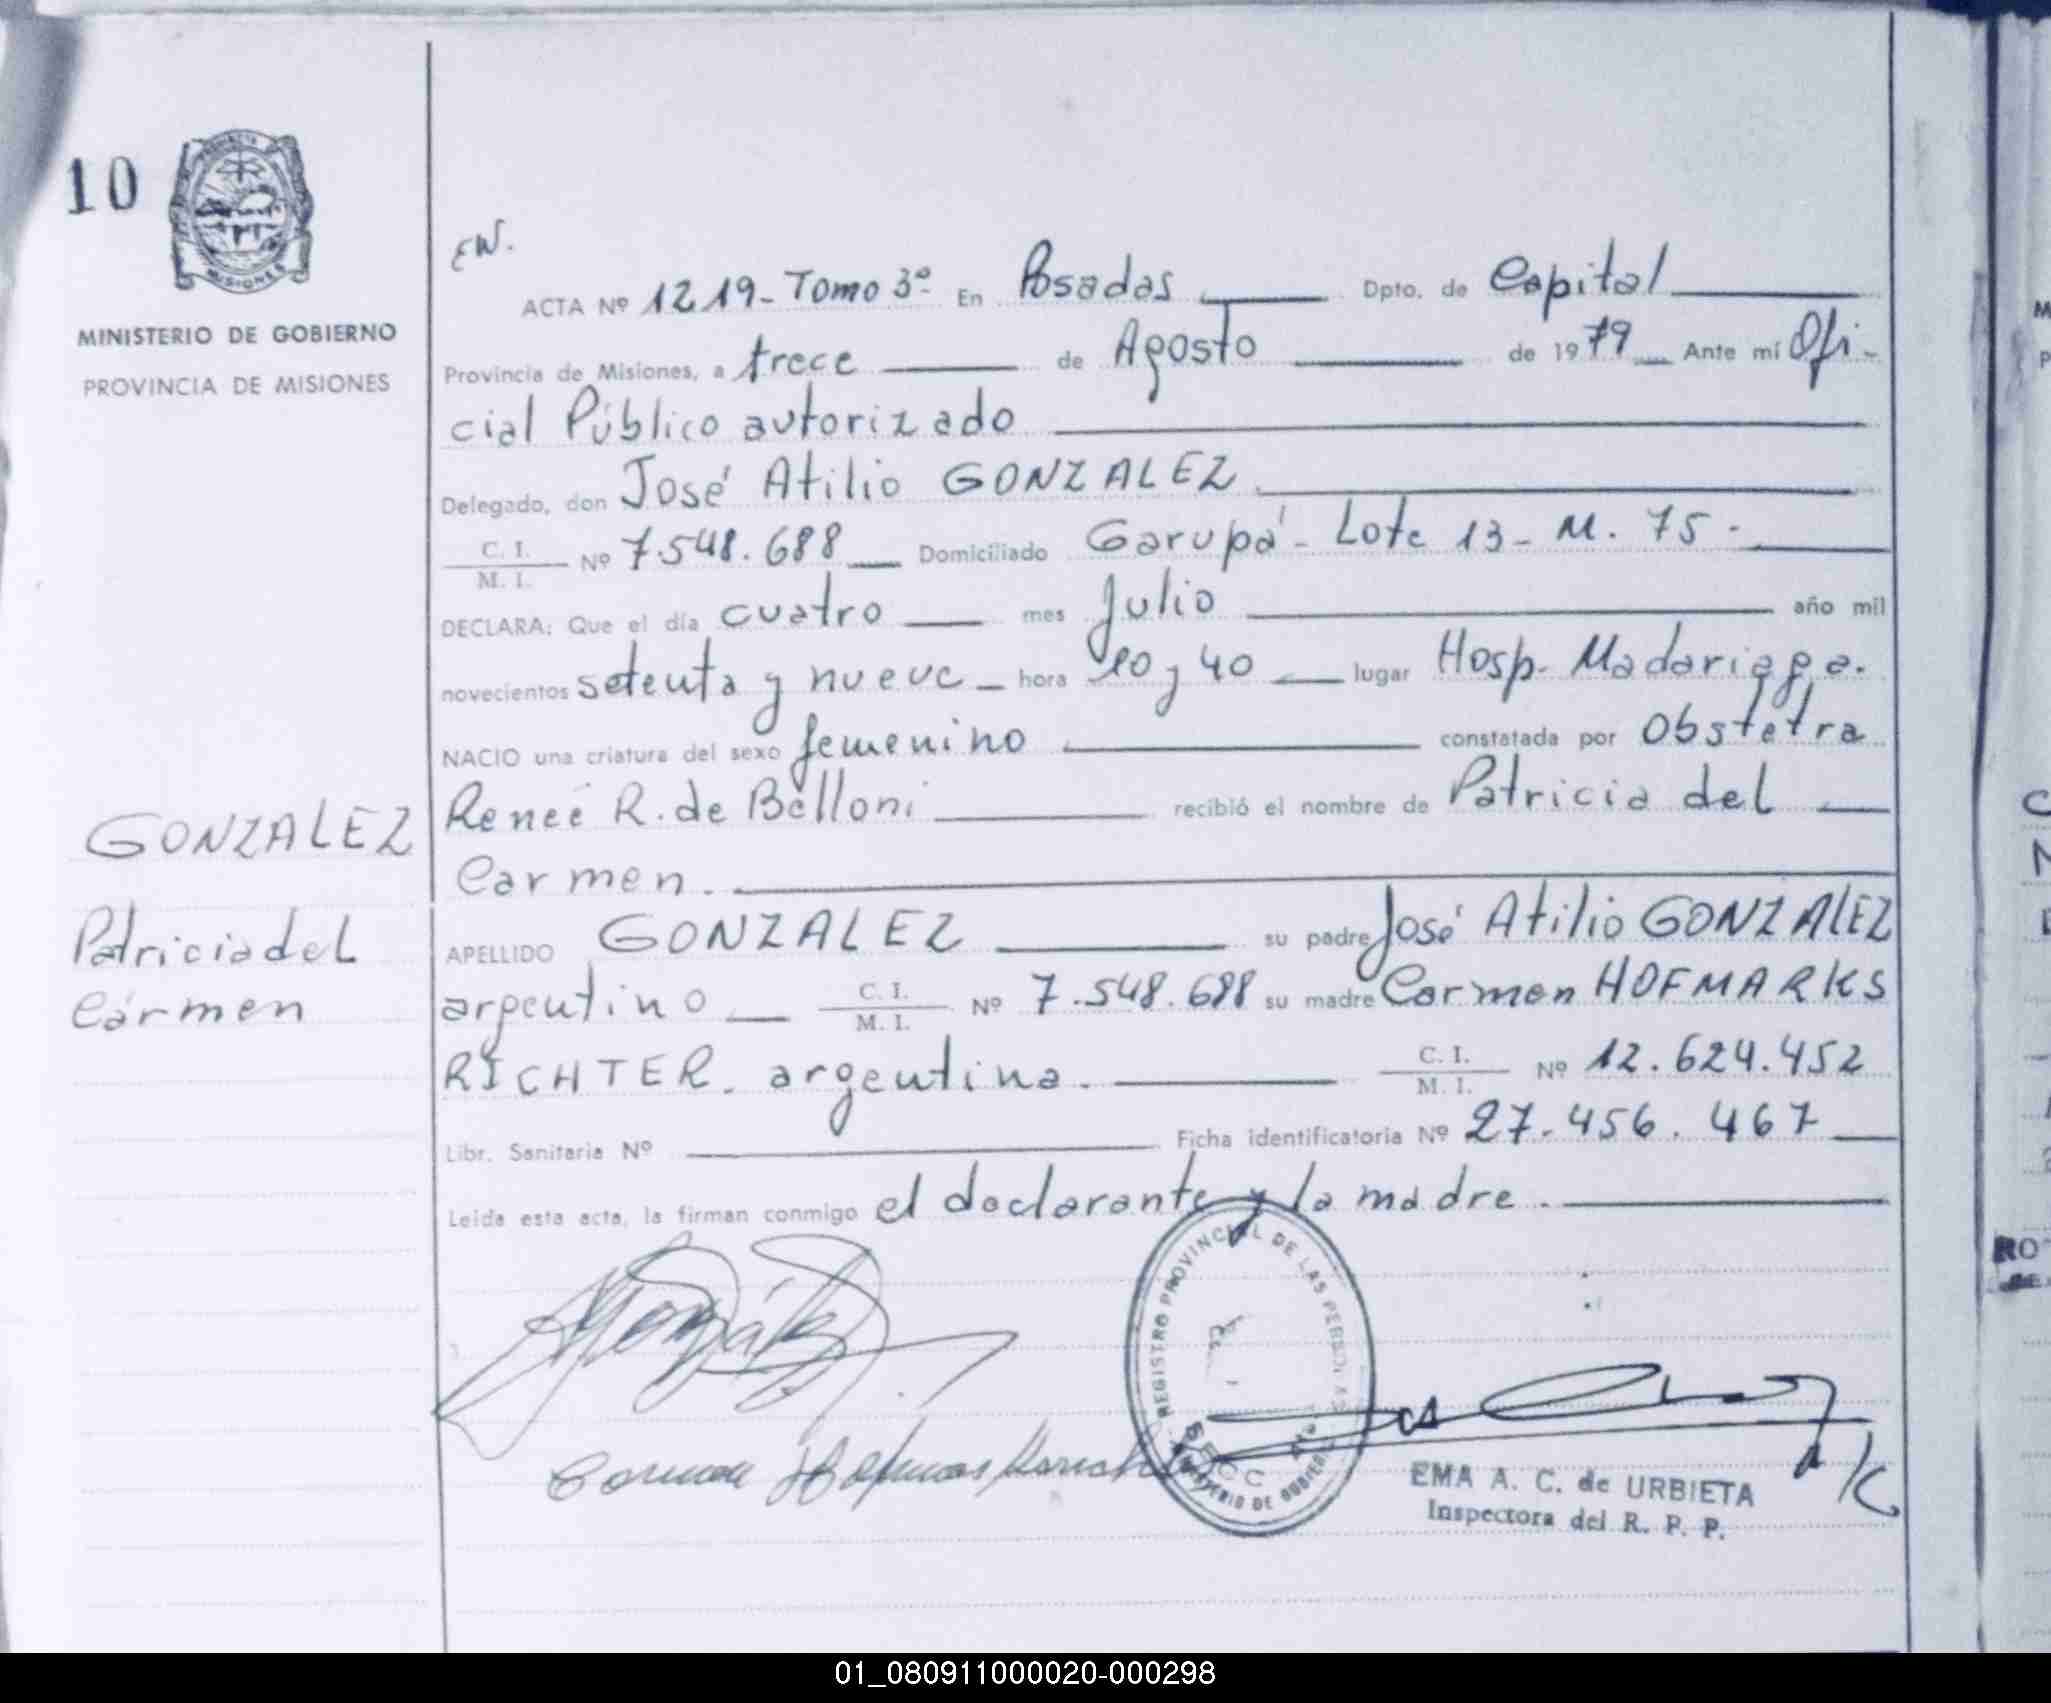 10
MINISTERIO DE GOBIERNO
PROVINCIA DE MISIONES
EN.
ACTA Nº 1219- Tomo 3º En Posadas Dpto. de Capital
Provincia de Misiones, a trece de Agosto de 1979 Ante mí Ofi-
cial Público autorizado
Delegado, don José Atilio GONZALEZ
C. I.
M. I.
Nº 7.548.688 Domiciliado Garupá - Lote 13 - M. 75 -
DECLARA: Que el día cuatro mes Julio año mil
novecientos setenta y nueve - hora 10 y 40 lugar Hosp. Madariaga.
NACIO una criatura del sexo femenino constatada por Obstetra
Reneé R. de Belloni recibió el nombre de Patricia del
Carmen.
GONZALEZ
Patricia del
Cármen
APELLIDO GONZALEZ su padre José Atilio GONZALEZ
argentino C. I. M. I. Nº 7.548.688 su madre Carmen HOFMARKS
RICHTER. argentina. C. I. M. I. Nº 12.624.452
Libr. Sanitaria Nº Ficha identificatoria Nº 27.456.467
Leída esta acta, la firman conmigo el declarante y la madre.
REGISTRO PROVINCIAL DE LAS PERSONAS
MINISTERIO DE GOBIERNO
EMA A. C. de URBIETA
Inspectora del R. P. P.
01_080911000020-000298